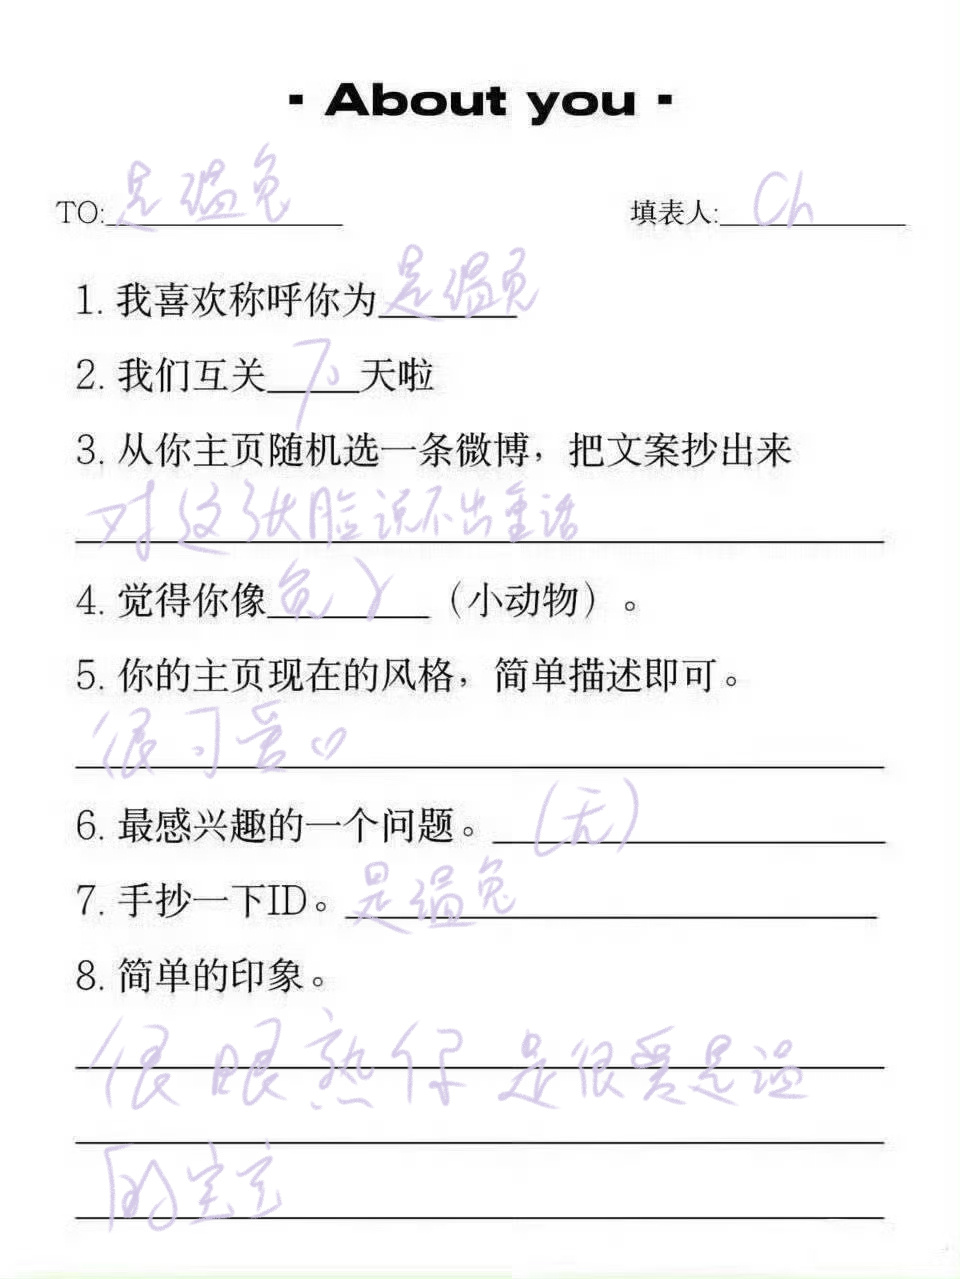 - About you -
TO: 是温兔 填表人: Ch
1. 我喜欢称呼你为是温兔
2. 我们互关 天啦
3. 从你主页随机选一条微博，把文案抄出来
对这张脸说不出重话
4. 觉得你像兔丫（小动物）。
5. 你的主页现在的风格，简单描述即可。
很可爱♡
6. 最感兴趣的一个问题。（无）
7. 手抄一下ID。是温兔
8. 简单的印象。
很眼熟你 是很爱是温
的宝宝